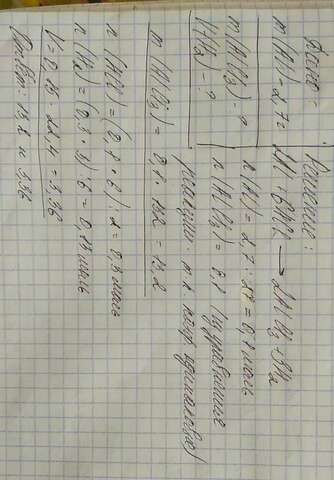 Дано:
m(Al) = 2,7г
m(AlCl3) - ?
V(H2) - ?
Решение:
2Al + 6HCl → 2AlCl3 + 3H2
n(Al) = 2,7 : 27 = 0,1 моль
n(AlCl3) = 0,1 (из уравнения
реакции, т.к. коэф. одинаковы)
m(AlCl3) = 0,1 · 132 = 13,2
n(HCl) = (0,1 · 6) : 2 = 0,3 моль
n(H2) = (0,3 · 3) : 6 = 0,15 моль
V = 0,15 · 22,4 = 3,36
Ответ: 13,2 и 3,36